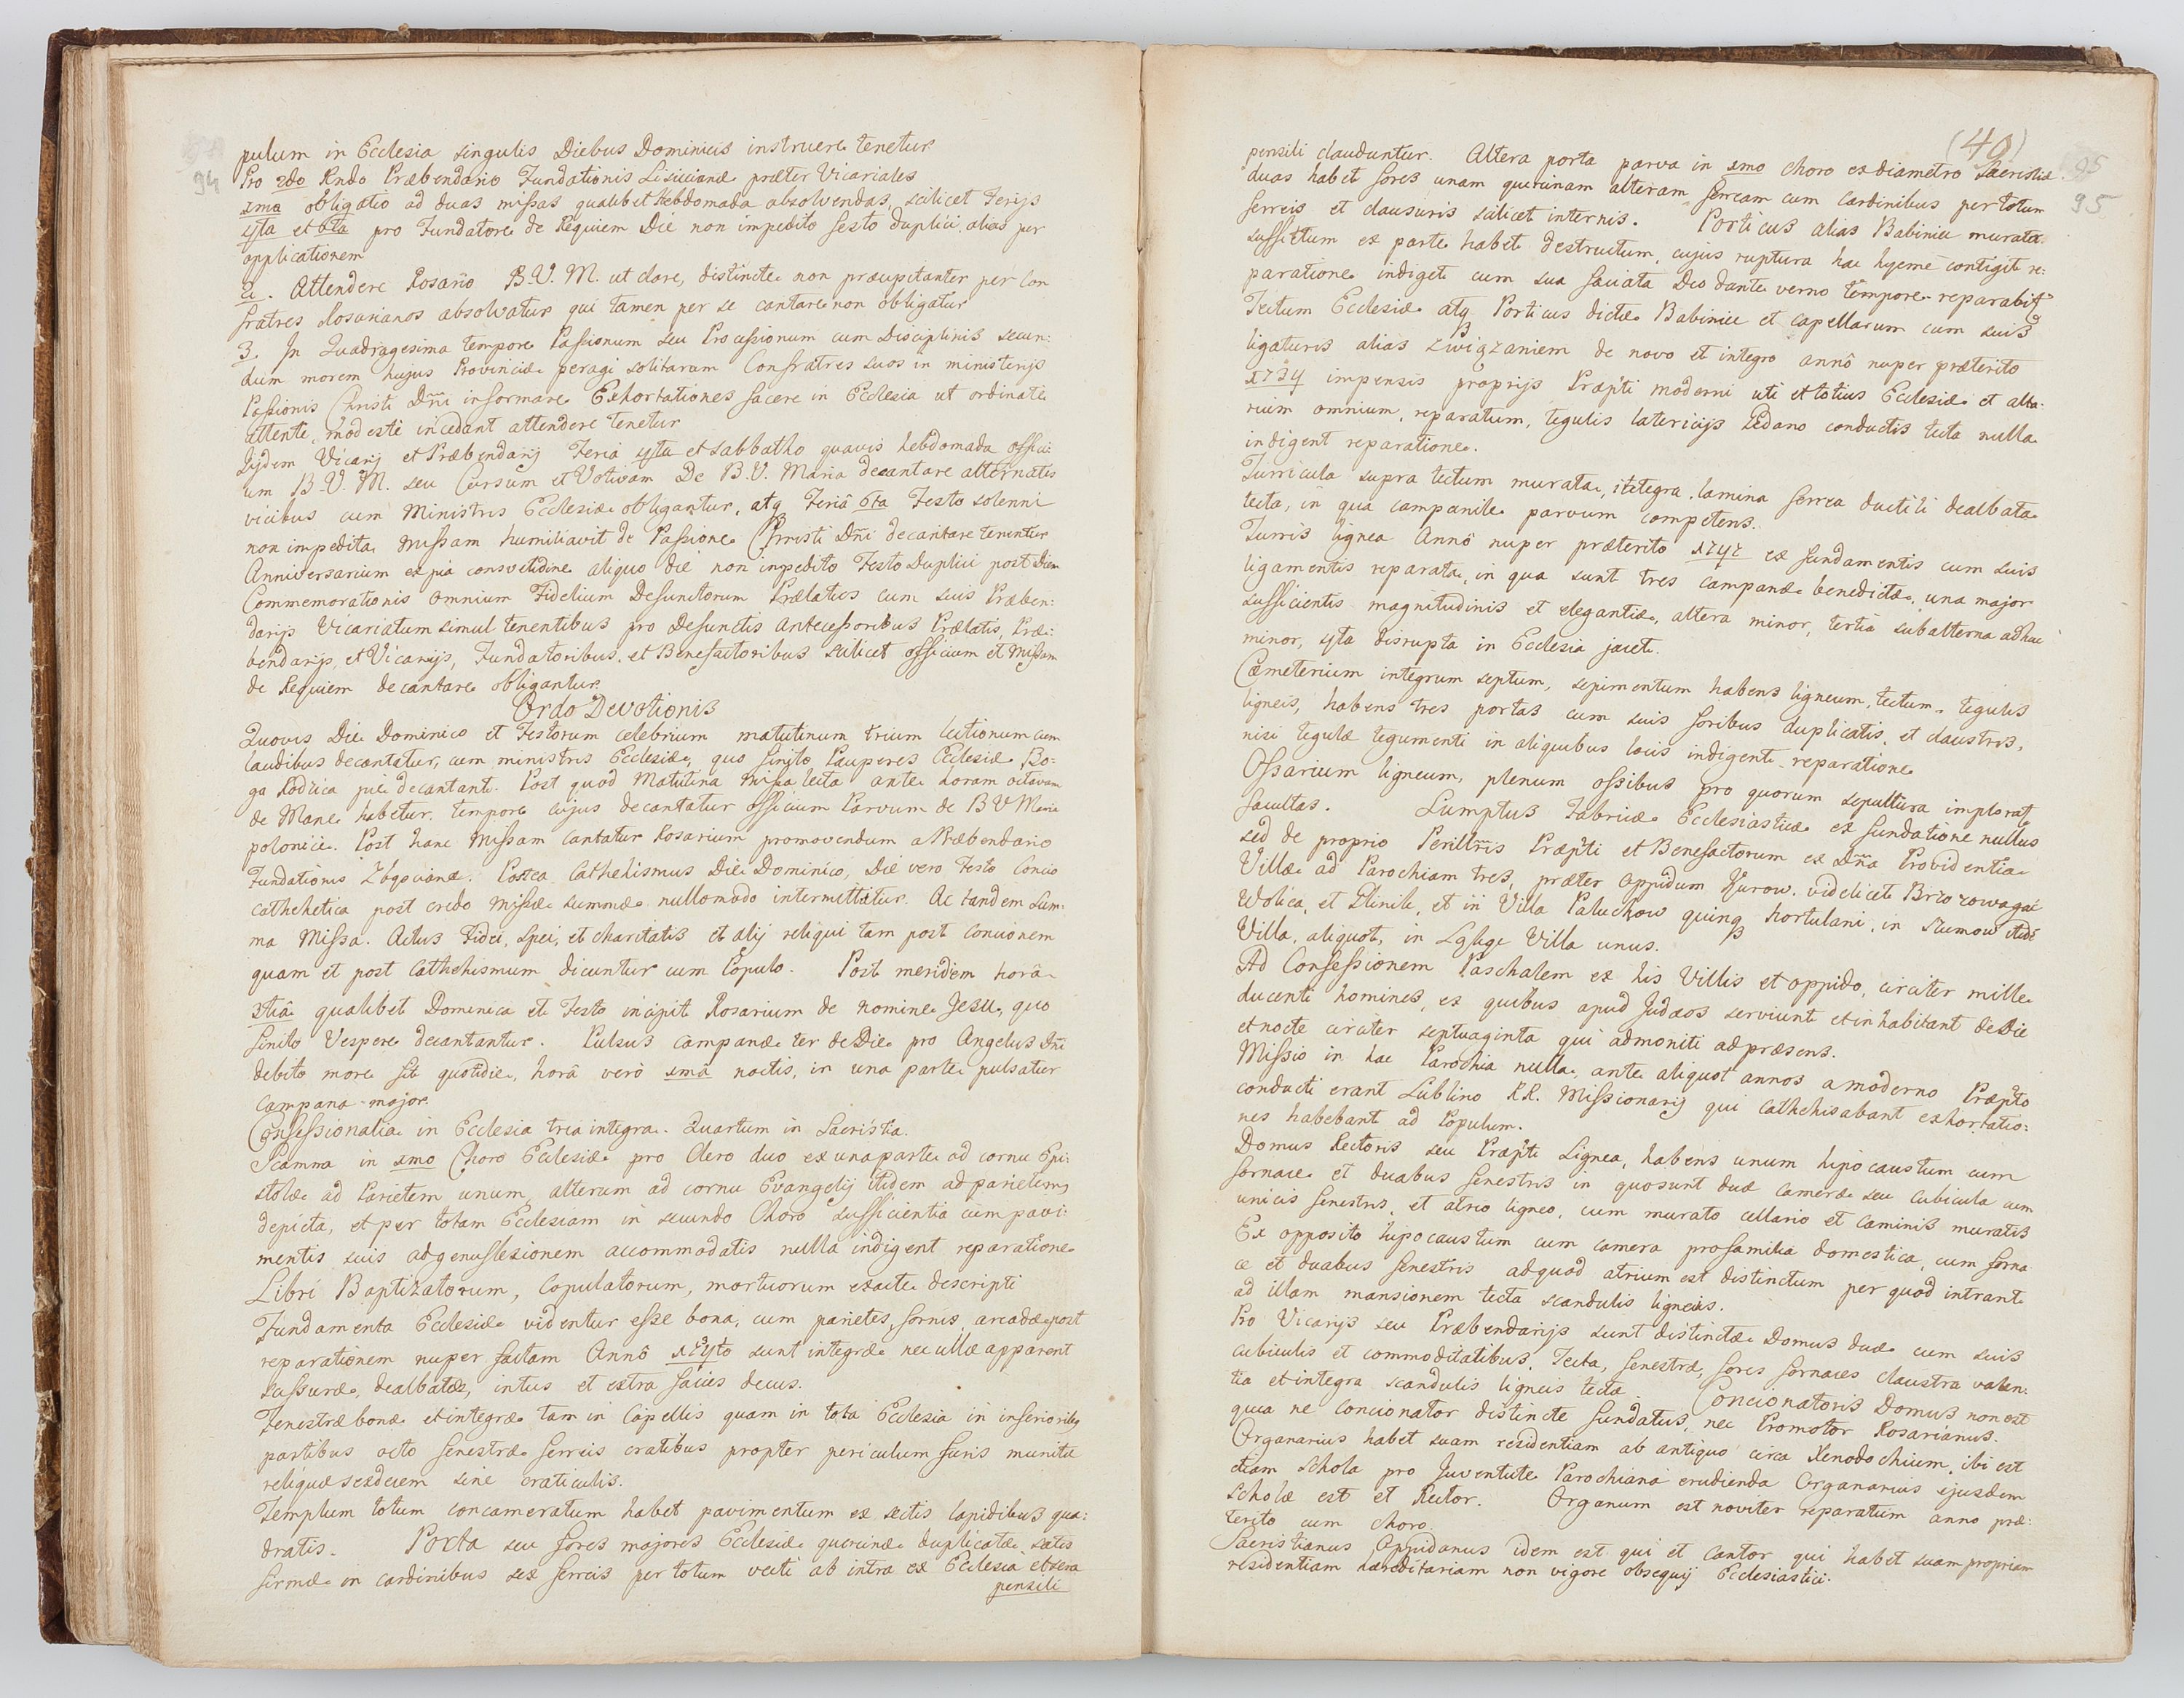 94
pulum in Ecclesia singulis Diebus Dominicis instruere tenetur
Pro 2do Rndo Præbendario Fundationis Lisiecianæ præter Vicariales
1ma obligatio ad duas missas qualibet Hebdomada absolvendas, scilicet Ferijs
4ta et 6ta pro Fundatore de Requiem Die non impedito festo duplici, alias per
applicationem
2. Attendere Rosario B.V.M. ut clare, distincte non præcipitanter per Con
fratres Rosarianos absolvatur qui tamen per se cantare non obligatur
3. In Quadragesima tempore Passionum seu Processionum cum Disciplinis secun:
dum morem hujus Provinciæ peragi solitarum Confratres suos in ministerijs
Passionis Christi Dñi informare Exhortationes facere in Ecclesia ut ordinate
attente, modeste incedant attendere tenetur
Ijdem Vicarij et Præbendarij Feria 4ta et Sabbatho quavis hebdomada offici:
um B.V.M. seu Cursum et Votivam De B.V. Maria decantare alternatis
vicibus cum Ministris Ecclesiæ obligantur, atq Feriâ 6ta Festo solenni
non impedita Missam humiliavit de Passione Christi Dñi decantare tenentur
Anniversarium ex pia consvetudine aliquo die non impedito Festo Duplici post diem
Commemorationis omnium Fidelium Defunctorum Prælatus cum suis Præben:
darijs Vicariatum simul tenentibus pro Defunctis Antecessoribus Prælatis, Præ:
bendarijs, et Vicarijs, Fundatoribus et Benefactoribus scilicet officium et Missam
de Requiem decantare obligantur.
Ordo Devotionis
Quovis Die Dominico et Festorum celebrium matutinum trium lectionum cum
laudibus decantatur, cum ministris Ecclesiæ, quo finito Pauperes Ecclesiæ Bo:
ga Rodzica pie decantant. Post quod Matutina Missa lecta ante horam octavam
de Mane habetur, tempore cujus decantatur officium Parvum de B V Maria
polonice. Post hanc Missam Cantatur Rosarium promovendum a Præbendario
Fundationis Zbąscianæ. Postea Cathehismus Die Dominico, Die vero Festo Concio
cathehetica post credo Missæ summæ nullomodo intermittitur. Ac tandem Sum:
ma Missa. Actus Fidei, Spei, et charitatis et alij reliqui tam post Concionem
quam et post Cathehismum dicuntur cum Populo. Post meridiem horâ
3tiâ qualibet Dominica et Festo incipit Rosarium de nomine Jesu, quo
finito Vespere decantantur. Pulsus campanæ ter de Die pro Angelus Dñi
debito more fit quotidie, horâ verò 1mâ noctis, in una parte pulsatur
campana major.
Confessionalia in Ecclesia tria integra. Quartum in Sacristia.
Scamna in 1mo Choro Ecclesiæ pro Clero duo ex una parte ad cornu Epi:
stolæ ad Parietem unum, alterum ad cornu Evangelij itidem ad parietem
depicta, et per totam Ecclesiam in secundo Choro sufficientia cum pavi:
mentis suis ad genuflexionem accommodatis nulla indigent reparatione
Libri Baptizatorum, Copulatorum, mortuorum exacte descripti
Fundamenta Ecclesiæ videntur esse bona, cum parietes, fornis, arcadæ post
reparationem nuper factam Annô sunt integræ nec ullæ apparent
rassuræ, dealbatæ, intus et extra facies decus.
Fenestræ bonæ et integræ tam in Capellis quam in tota Ecclesia in inferioribq
partibus octo fenestræ ferreis cratibus propter periculum furis munitæ
reliquæ sexdecem sine craticulis.
Templum totum concameratum habet pavimentum ex sectis lapidibus qua:
dratis. Porta seu fores majores Ecclesiæ quercinæ duplicatæ, satis
firmæ in cardinibus sex ferreis per totum vecti ab intra ex Ecclesia et sera
pensili
(40)
95
95
pensili clauduntur. Altera porta parva in 1mo choro ex diametro Sacristiæ
duas habet fores unam quercinam alteram ferream cum Cardinibus per totum
ferreis et clausuris scilicet internis. Porticus alias Babiniec murata
suffittum ex parte habet destructum, cujus ruptura hac hyeme contigit re:
paratione indiget cum sua faciata Deo dante verno tempore reparabitq
Tectum Ecclesiæ atq Porticus dictæ Babiniec et capellarum cum suis
ligaturis alias związaniem de novo et integro annô nuper præterito
1734 impensis proprijs Præpti moderni uti et totius Ecclesiæ et alta:
rium omnium, reparatum, tegulis latericijs Gedano conductis tecta nulla
indigent reparatione.
Turricula supra tectum murata, integra, lamina ferrea ductili dealbata
tecta, in qua campanile parvum competens.
Turris lignea Annô nuper præterito 1742 ex fundamentis cum suis
ligamentis reparata, in qua sunt tres campanæ benedictæ, una major
sufficientis magnitudinis et elegantiæ, altera minor, tertia subalterna adhuc
minor, 4ta disrupta in Ecclesia jacet.
Cæmeterium integrum septum, sepimentum habens ligneum, tectum tegulis
ligneis, habens tres portas cum suis foribus duplicatis et claustris,
nisi tegulæ tegumenti in aliquibus locis indigent reparatione
Ossarium ligneum, plenum ossibus pro quorum sepultura imploratq
facultas. Sumptus Fabricæ Ecclesiasticæ ex fundatione nullus
sed de proprio Perilltris Præpti et Benefactorum ex Dña Providentia
Villæ ad Parochiam tres, præter oppidum Żurow. videlicet Brzozowagać
Wolica, et Plinik, et in Villa Paluchow quinq hortulani, in Rumow itidē
Villa, aliquot, in Villa unus.
Ad Confessionem Paschalem ex his Villis et oppido, circiter mille
ducenti homines, ex quibus apud Judæos serviunt et inhabitant de Die
et nocte circiter septuaginta qui admoniti ad præsens.
Missio in hac Parochia nulla, ante aliquot annos a moderno Præpto
conducti erant Lublino RR. Missionarij qui Cathehisabant exhortatio:
nes habebant ad Populum.
Domus Rectoris seu Præpti Lignea, habens unum hipocaustum cum
fornace et duabus fenestris in quo sunt duæ cameræ seu cubicula cum
unicis fenestris, et atrio ligneo, cum murato cellario et caminis muratis
Ex opposito hipocaustum cum camera pro familia domestica, cum forna
ce et duabus fenestris ad quod atrium est distinctum per quod intrant
ad illam mansionem tecta scandulis ligneis.
Pro Vicarijs seu Præbendarijs sunt distinctæ Domus duæ cum suis
cubiculis et commoditatibus. Tecta, fenestræ, fores fornaces claustra valen:
tia et integra scandulis ligneis tectæ. Concionatoris Domus non est
quia ne Concionator distincte fundatus, nec Promotor Rosarianus.
Organarius habet suam residentiam ab antiquo circa Xenodochium, ibi est
etiam schola pro Juventute Parochiana erudienda Organarius ejusdem
Scholæ est et Rector. Organum est noviter reparatum anno præ:
terito cum choro.
Sacristianus Oppidanus idem est qui et Cantor qui habet suam propriam
residentiam hæreditariam non vigore obsequij Ecclesiastici.